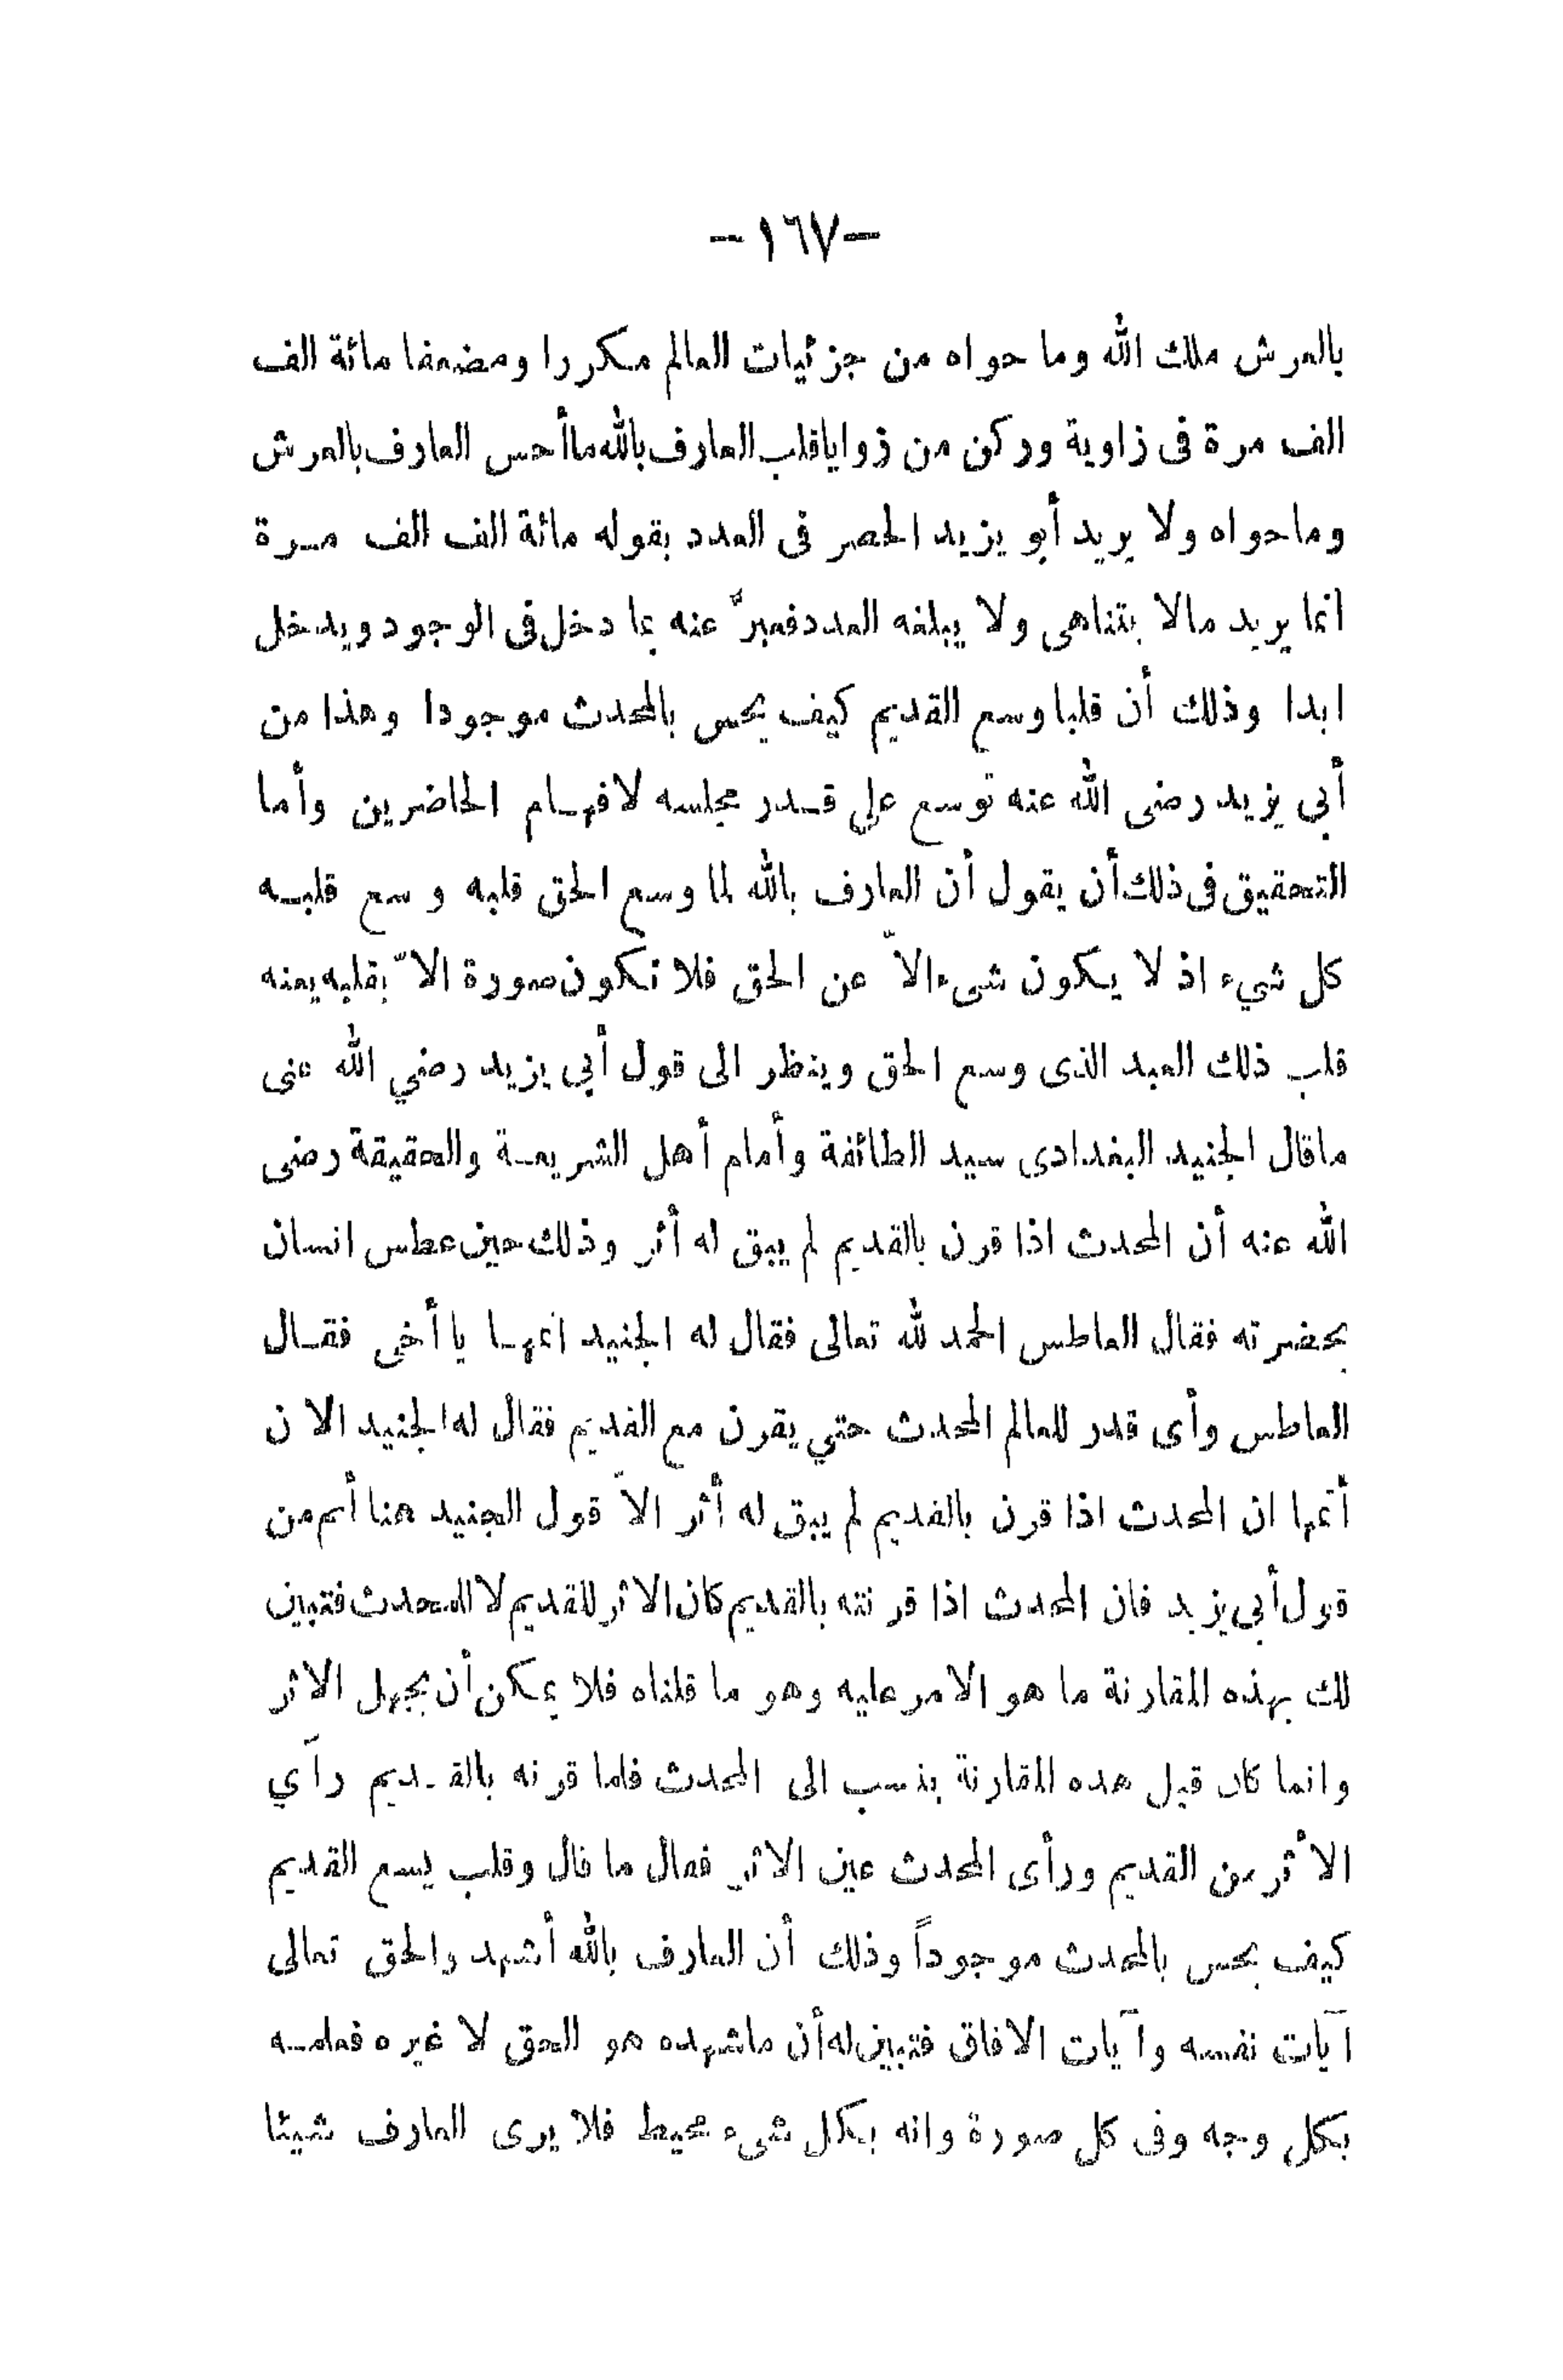 -١٦٧-
بالعرش ملك الله وما حواه من جزئيات العالم مكررا ومضعفا مائة الف
الف مرة فى زاوية وركن من زوايا قلب العارف بالله ما أحس العارف بالعرش
وما حواه ولا يريد أبو يزيد الحصر فى العدد بقوله مائة الف الف مرة
انما يريد مالا يتناهى ولا يبلغه العدد فعبرّ عنه بما دخل فى الوجود ويدخل
ابدا وذلك أن قلبا وسع القديم كيف يحس بالمحدث موجودا وهذا من
أبي يزيد رضى الله عنه توسع علي قدر مجلسه لافهام الحاضرين وأما
التحقيق فى ذلك أن يقول أن العارف بالله لما وسع الحق قلبه وسع قلبه
كل شيء اذ لا يكون شىء الاّ عن الحق فلا تكون صورة الاّ بقلبه يعنه
قلب ذلك العبد الذى وسع الحق وينظر الى قول أبي يزيد رضي الله عنى
ما قال الجنيد البغدادى سيد الطائفة وأمام أهل الشريعة والحقيقة رضى
الله عنه أن المحدث اذا قرن بالقديم لم يبق له أثر وذلك حين عطس انسان
بحضرته فقال العاطس الحمد لله تعالى فقال له الجنيد اتمها يا أخى فقال
العاطس وأى قدر للعالم المحدث حتي يقرن مع القديم فقال له الجنيد الان
أتمها ان المحدث اذا قرن بالقديم لم يبق له أثر الاّ قول الجنيد هنا أتم من
قول أبى يزيد فان المحدث اذا قرنته بالقديم كان الاثر للقديم لا للمحدث فتبين
لك بهذه المقارنة ما هو الامر عليه وهو ما قلناه فلا يمكن أن يجهل الاثر
وانما كان قبل هده المقارنة ينسب الى المحدث فلما قرنه بالقديم رآي
الأثر من القديم ورأى المحدث عين الاثر فقال ما قال وقلب يسع القديم
كيف يحس بالمحدث موجوداً وذلك أن العارف بالله أشهد والحق تعالى
آيات نفسه وآيات الافاق فتبين له أن ما شهده هو الحق لا غيره فعلمه
بكل وجه وفى كل صورة وانه بكل شىء محيط فلا يرى العارف شيئا